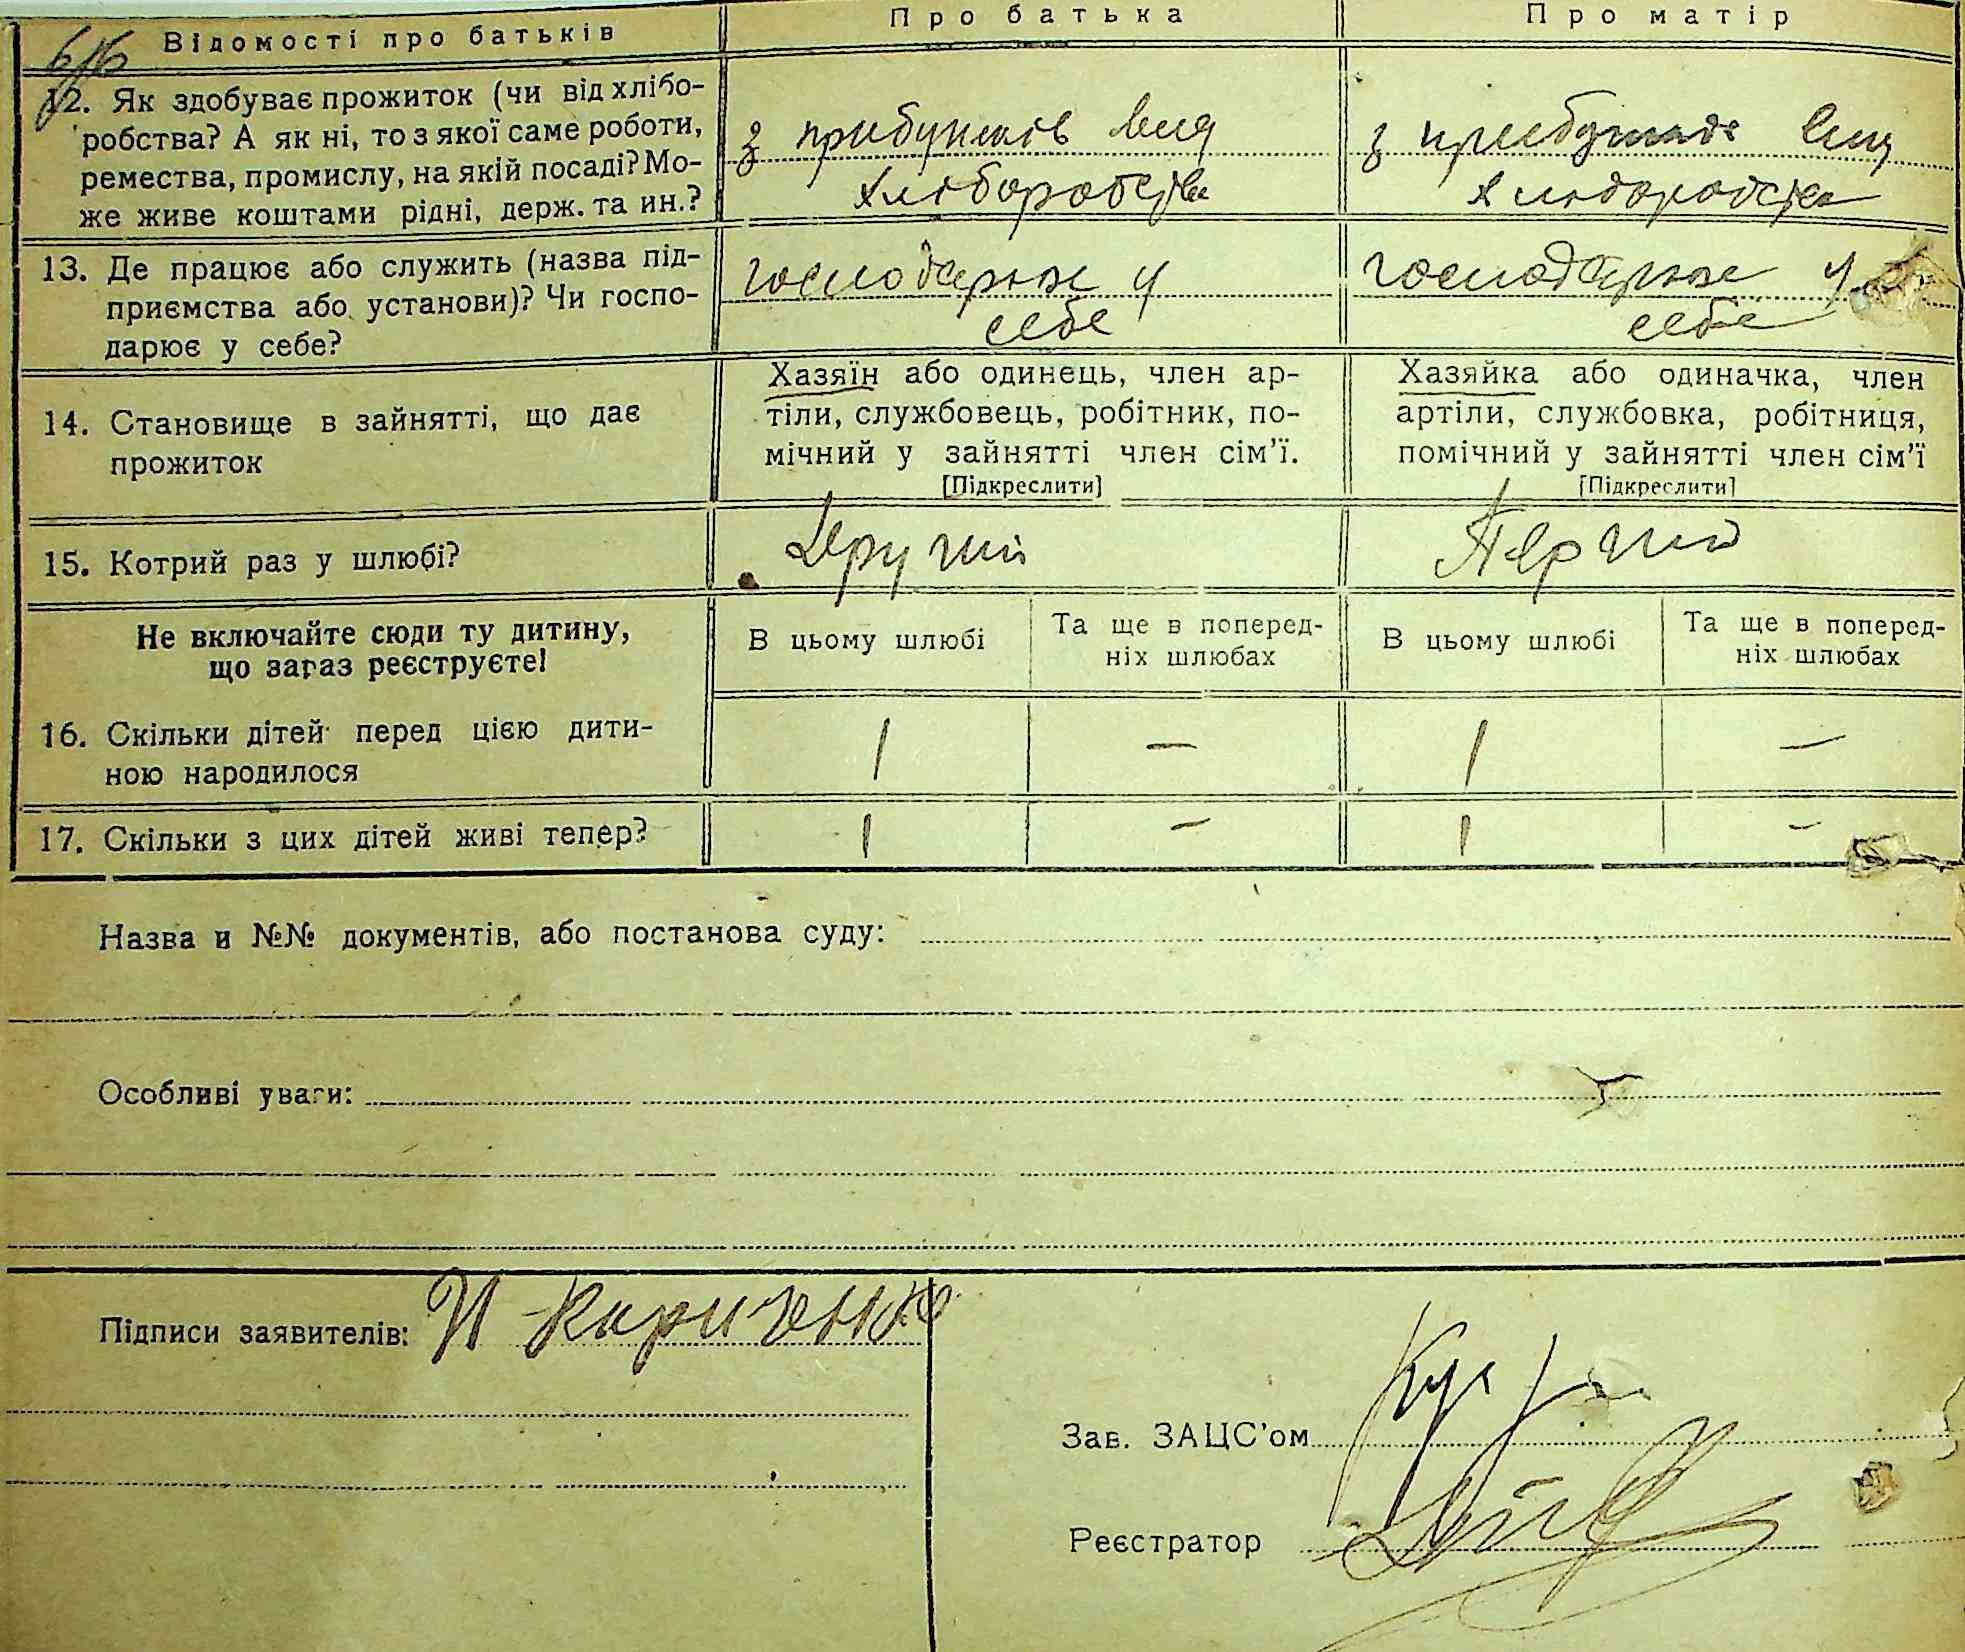 Відомості про батьків
Про батька
Про матір
12. Як здобуває прожиток (чи від хлібо-
робства? А як ні, то з якої саме роботи,
ремества, промислу, на якій посаді? Мо-
же живе коштами рідні, держ. та ин.?
з прибутків від
хліборобства
з прибутків від
хліборобства
13. Де працює або служить (назва під-
приємства або установи)? Чи госпо-
дарює у себе?
господарює у
себе
господарює у
себе
14. Становище в зайнятті, що дає
прожиток
Хазяїн або одинець, член ар-
тіли, службовець, робітник, по-
мічний у зайнятті член сім'ї.
[Підкреслити]
Хазяйка або одиначка, член
артіли, службовка, робітниця,
помічний у зайнятті член сім'ї
[Підкреслити]
15. Котрий раз у шлюбі?
Другий
Перший
Не включайте сюди ту дитину,
що зараз реєструєте!
В цьому шлюбі
Та ще в поперед-
ніх шлюбах
В цьому шлюбі
Та ще в поперед-
ніх шлюбах
16. Скільки дітей перед цією дити-
ною народилося
1 — 1 —
17. Скільки з цих дітей живі тепер?
1 - 1 -
Назва и №№ документів, або постанова суду:
Особливі уваги:
Підписи заявителів: И Кириченко
Зав. ЗАЦС'ом
Реєстратор